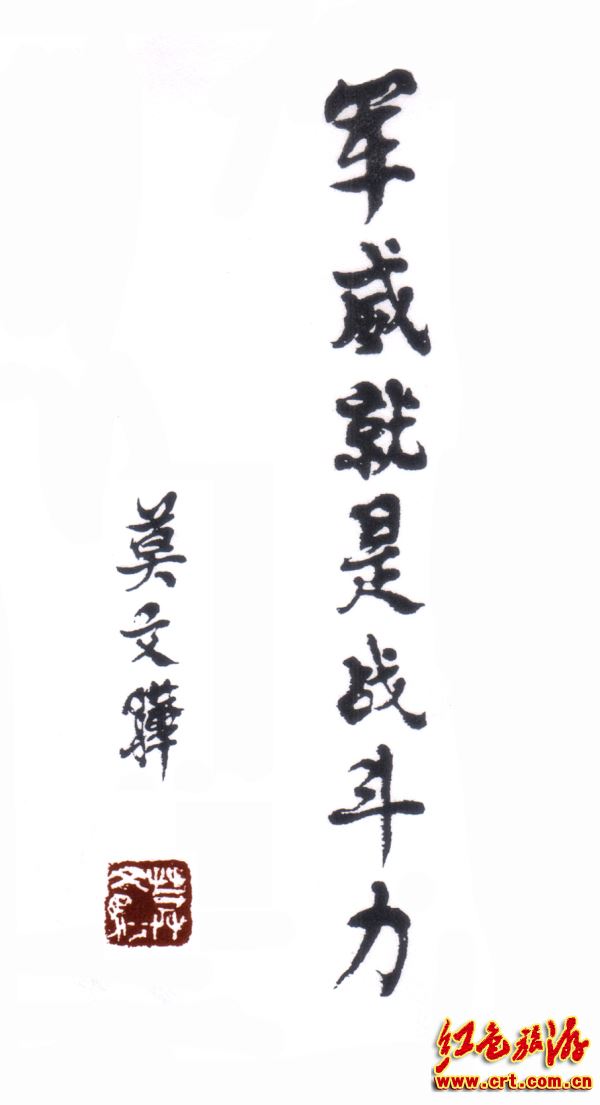 军威就是战斗力
莫文骅
红色旅游
www.crt.com.cn